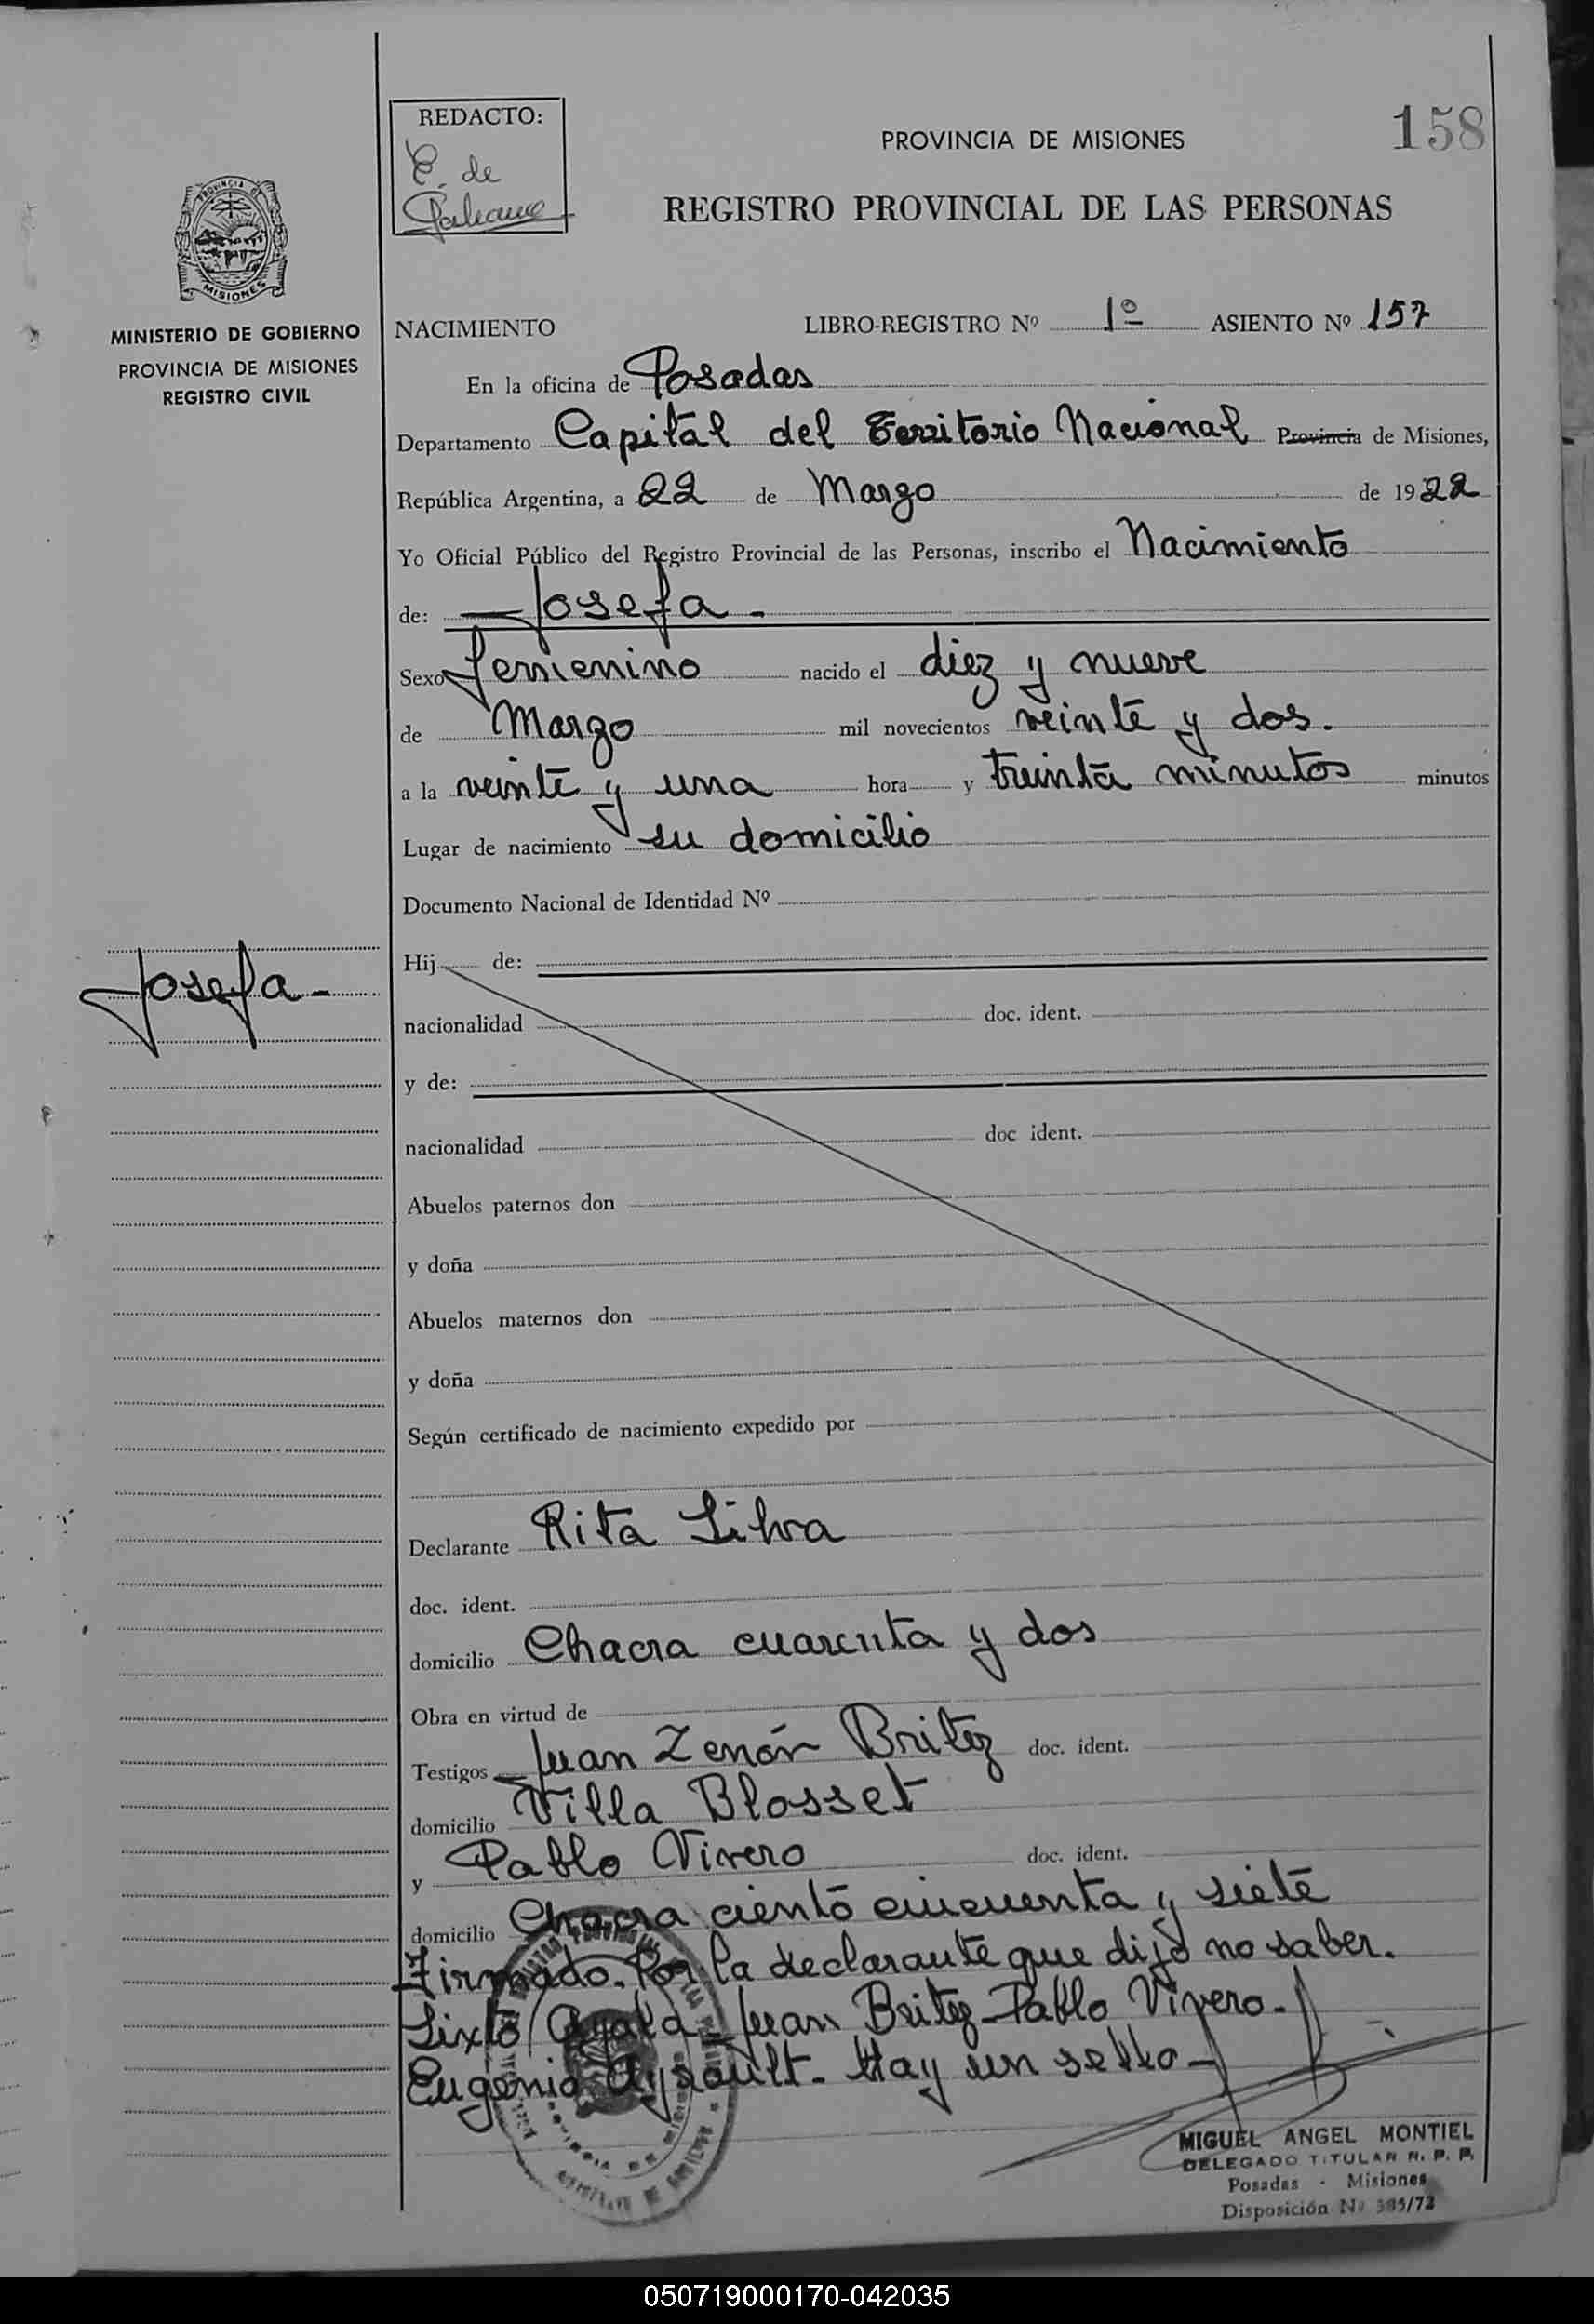 REDACTO:
C. de
Galeano
PROVINCIA DE MISIONES
158
REGISTRO PROVINCIAL DE LAS PERSONAS
PROVINCIA DE
MISIONES
MINISTERIO DE GOBIERNO
PROVINCIA DE MISIONES
REGISTRO CIVIL
NACIMIENTO LIBRO-REGISTRO Nº 1º ASIENTO Nº 157
En la oficina de Posadas
Departamento Capital del Territorio Nacional Provincia de Misiones,
República Argentina, a 22 de Marzo de 1922
Yo Oficial Público del Registro Provincial de las Personas, inscribo el Nacimiento
de: Josefa -
Sexo femenino nacido el diez y nueve
de Marzo mil novecientos veinte y dos.
a la veinte y una hora y treinta minutos minutos
Lugar de nacimiento su domicilio
Documento Nacional de Identidad Nº
Josefa -
Hij de:
nacionalidad doc. ident.
y de:
nacionalidad doc ident.
Abuelos paternos don
y doña
Abuelos maternos don
y doña
Según certificado de nacimiento expedido por
Declarante Rita Silva
doc. ident.
domicilio Chacra cuarenta y dos
Obra en virtud de
Testigos Juan Zenón Britez doc. ident.
domicilio Villa Blosset
y Pablo Vivero doc. ident.
domicilio Chacra ciento cincuenta y siete
Firmado. Por la declarante que dijo no saber.
Sixto Ayala - Juan Britez - Pablo Vivero -
Eugenio Ayrault - Hay un sello -
MIGUEL ANGEL MONTIEL
DELEGADO TITULAR R. P. P.
Posadas - Misiones
Disposición Nº 385/73
050719000170-042035